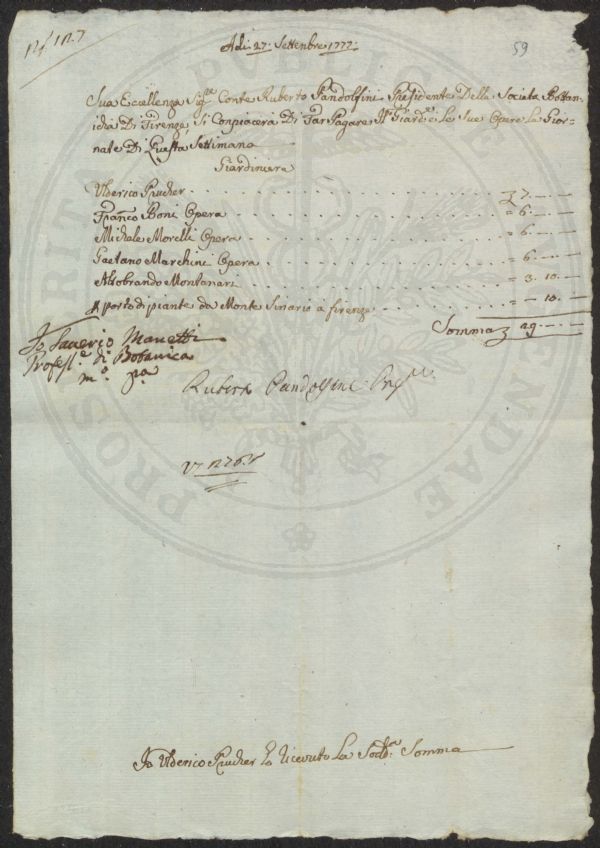 N.º 127
Adi: 27: Settenbre 1777:
59
Sua Eccellenza Sig.re Conte Ruberto Pandolfini Presidente Della Societa Bottan-
icha Di Firenze Si Conpiacera Di Far Pagare Gardi e Le Sue Opere La Gior-
nate Di Questa Settimana
Giardiniera
Ulderico Prucher 7. — —
Franco Boni Opera = 6. — —
Michele Morelli Opera = 6. — —
Gaetano Marchini Opera = 6. — —
Aldobrando Montanari = 3. 10. —
A porto di piante da Monte Sinario a firenze = — 10. —
Somma 29 — —
Io Saverio Manetti
Profess.e di Botanica
m.o p.a
Ruberto Pandolfini Pres.te
PROSPERITATI PUBLICAE AUGENDAE
Io Ulderico Prucher ho Riceuto La Sod.a Somma